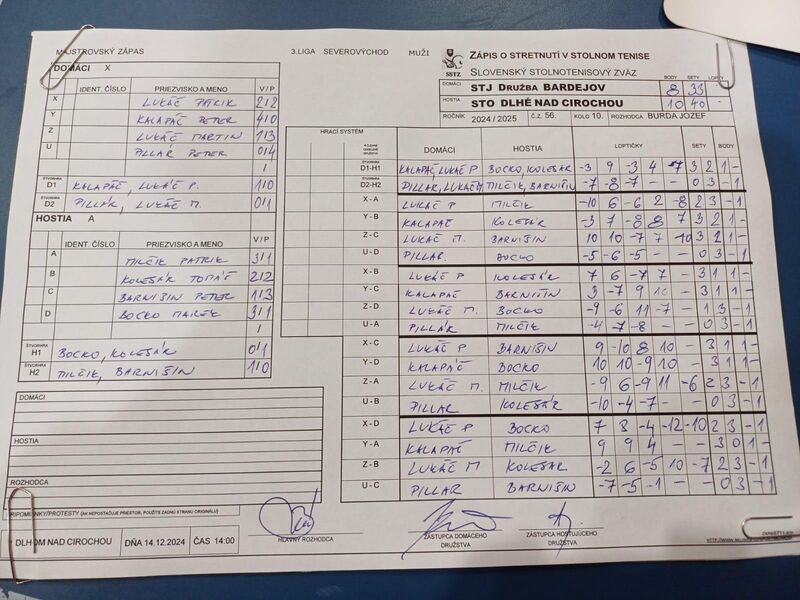 MAJSTROVSKÝ ZÁPAS 3.LIGA SEVEROVÝCHOD MUŽI
ZÁPIS O STRETNUTÍ V STOLNOM TENISE
SSTZ SLOVENSKÝ STOLNOTENISOVÝ ZVÄZ
BODY SETY LOPTY
DOMÁCI STJ Družba BARDEJOV 8 33
HOSTIA STO DLHÉ NAD CIROCHOU 10 40 -
ROČNÍK 2024 / 2025 č.z. 56. KOLO 10. ROZHODCA BURDA JOZEF
DOMÁCI X
IDENT. ČÍSLO PRIEZVISKO A MENO V/P
X LUKÁČ PATRIK 2/2
Y KALAPÁČ PETER 4/0
Z LUKÁČ MARTIN 1/3
U PILLÁR PETER 0/4
/
ŠTVORHRA D1 KALAPÁČ, LUKÁČ P. 1/0
ŠTVORHRA D2 PILLÁR, LUKÁČ M. 0/1
HOSTIA A
IDENT. ČÍSLO PRIEZVISKO A MENO V/P
A MILČIK PATRIK 3/1
B KOLESÁR TOMÁŠ 2/2
C BARNIŠIN PETER 1/3
D BOCKO MAREK 3/1
/
ŠTVORHRA H1 BOCKO, KOLESÁR 0/1
ŠTVORHRA H2 MILČIK, BARNIŠIN 1/0
DOMÁCI
HOSTIA
ROZHODCA
PRIPOMIENKY/PROTESTY (AK NEPOSTAČUJE PRIESTOR, POUŽITE ZADNÚ STRANU ORIGINÁLU)
DLHOM NAD CIROCHOU DŇA 14.12.2024 ČAS 14:00
HRACÍ SYSTÉM
DOMÁCI HOSTIA LOPTIČKY SETY BODY
D1-H1 KALAPÁČ, LUKÁČ P BOCKO, KOLESÁR -3 9 -3 4 7 3 2 1 -
D2-H2 PILLAR, LUKÁČ M MILČIK, BARNIŠIN -7 -8 -7 - - 0 3 - 1
X - A LUKÁČ P MILČIK -10 6 -6 2 -8 2 3 - 1
Y - B KALAPÁČ KOLESÁR -3 7 -8 8 7 3 2 1 -
Z - C LUKÁČ M. BARNIŠIN 10 10 -7 7 -10 3 2 1 -
U - D PILLAR BOCKO -5 -6 -5 - - 0 3 - 1
X - B LUKÁČ P KOLESÁR 7 6 -7 7 - 3 1 1 -
Y - C KALAPÁČ BARNIŠIN 3 -7 9 10 - 3 1 1 -
Z - D LUKÁČ M. BOCKO -9 -6 11 -7 - 1 3 - 1
U - A PILLÁR MILČIK -4 -7 -8 - - 0 3 - 1
X - C LUKÁČ P BARNIŠIN 9 -10 8 10 - 3 1 1 -
Y - D KALAPÁČ BOCKO 10 10 -9 10 - 3 1 1 -
Z - A LUKÁČ M. MILČIK -9 6 -9 11 -6 2 3 - 1
U - B PILLAR KOLESÁR -10 -4 -7 - - 0 3 - 1
X - D LUKÁČ P BOCKO 7 8 -4 -12 -10 2 3 - 1
Y - A KALAPÁČ MILČIK 9 9 4 - - 3 0 1 -
Z - B LUKÁČ M KOLESAR -2 6 -5 10 -7 2 3 - 1
U - C PILLAR BARNIŠIN -7 -5 -1 - - 0 3 - 1
HLAVNÝ ROZHODCA
ZÁSTUPCA DOMÁCEHO DRUŽSTVA
ZÁSTUPCA HOSŤUJÚCEHO DRUŽSTVA